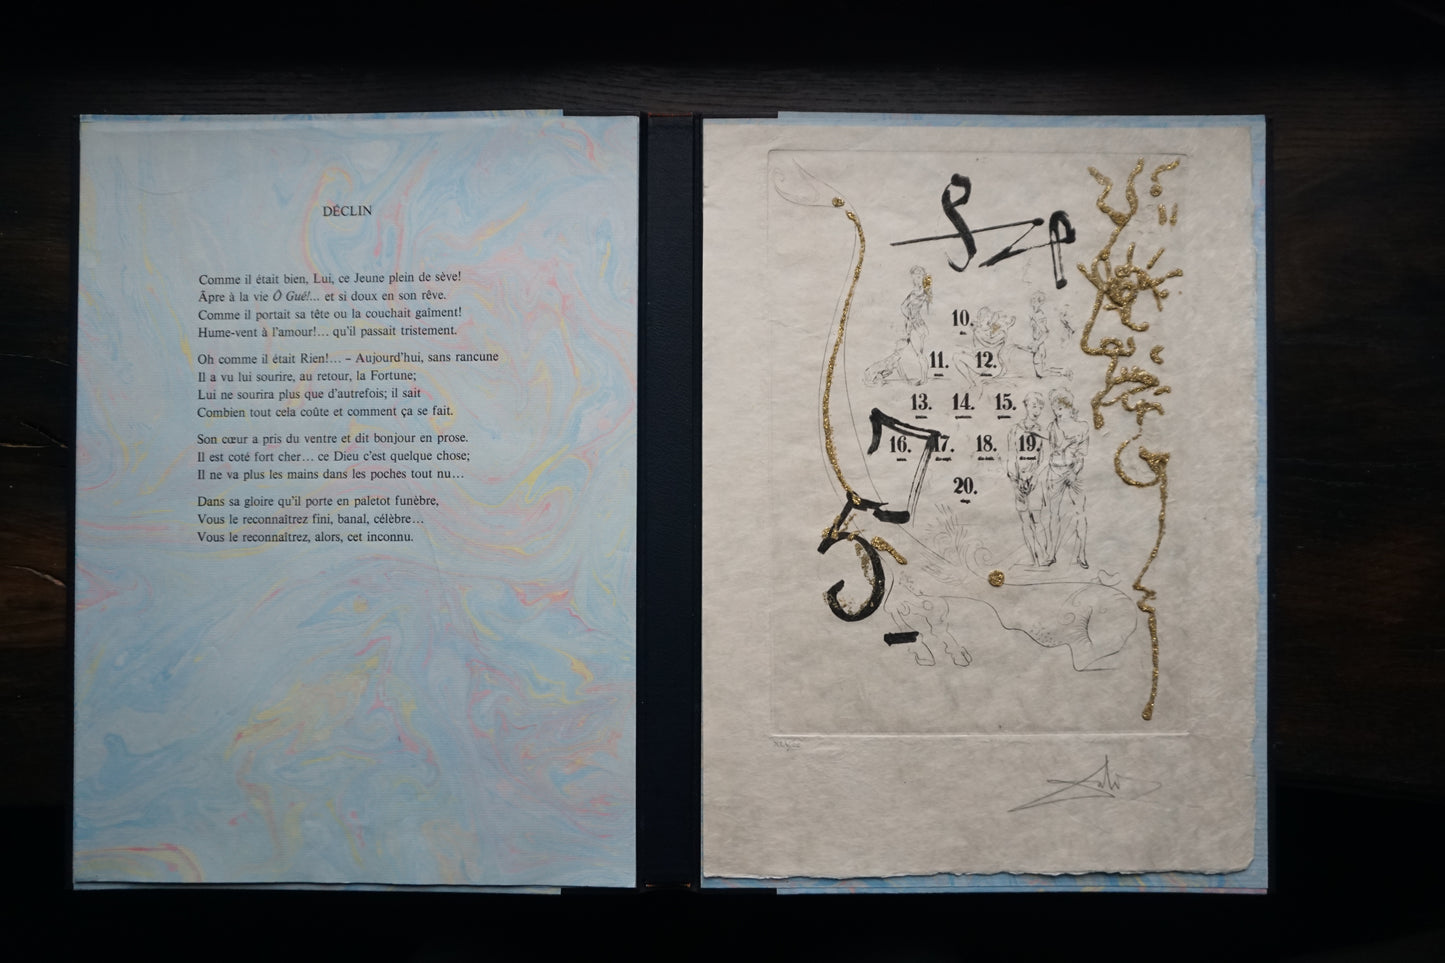 DÉCLIN
Comme il était bien, Lui, ce Jeune plein de sève!
Âpre à la vie Ô Gué!... et si doux en son rêve.
Comme il portait sa tête ou la couchait gaîment!
Hume-vent à l'amour!... qu'il passait tristement.
Oh comme il était Rien!... – Aujourd'hui, sans rancune
Il a vu lui sourire, au retour, la Fortune;
Lui ne sourira plus que d'autrefois; il sait
Combien tout cela coûte et comment ça se fait.
Son cœur a pris du ventre et dit bonjour en prose.
Il est coté fort cher... ce Dieu c'est quelque chose;
Il ne va plus les mains dans les poches tout nu...
Dans sa gloire qu'il porte en paletot funèbre,
Vous le reconnaîtrez fini, banal, célèbre...
Vous le reconnaîtrez, alors, cet inconnu.
10.
11. 12.
13. 14. 15.
16. 17. 18. 19.
20.
Dali